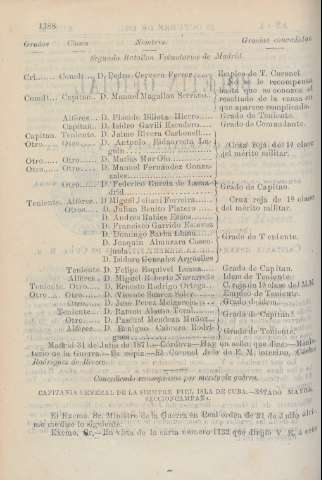 1388
Grados Clases Nombres. Gracias concedidas
Segundo Batallon Voluntarios de Madrid.
Crl..... Comdt... D. Pedro Cervera Ferrer..... Empleo de T. Coronel
No se le recompensa
hasta que se conozca el
resultado de la causa en
que aparece complicado.
Comdt... Capitan. D. Manuel Magallon Serrano.
Alférez.. D. Plácido Billota Hierro.... Grado de Teniente.
Capitan. D. Isidro Gavilá Escudero.... Grado de Comandante.
Capitan. Teniente. D. Jaime Rivera Carbonell..
Otro..... Otro..... D. Antonio
Otro..... D. Matías
Otro..... Otro..... D. Manuel Fernandez Gonzalez.
Cruz roja de 1ª clase
del mérito militar.
Otro..... D. Federico García de Lamadrid.
Grado de Capitan.
Teniente. Alférez.. D. Miguel Juliani Ferreira..
Otros.... D. Julian Benito Platero....
D. Andres Rubies Exsos
Cruz roja de 1ª clase
del mérito militar.
D. Francisco Garrido Esteves
D. Domingo
D. Joaquin
D. Isidoro Gonzalez Argüelles
Grado de Teniente.
Teniente. D. Felipe Esquivel Lozana.... Grado de Capitan.
Alférez.. D. Miguel Roberto Navarrete Idem de Teniente.
Teniente. Otro..... D. Ernesto Rodrigo Ortega... C. roja de 1ª clase del M. M.
Otro..... Otro..... D. Vicente Suarez Soler..... Empleo de Teniente.
Otro..... D. José Perez Melgarejo.... Grado de idem.
Teniente. D. Ramon Alonso Toral....
Otro..... D. Pascual Mendoza Muñoz..
Grado de Capitan.
Alférez.. D. Benigno Cabrera Rodriguez.
Grado de Teniente.
Madrid 31 de Julio de 1871.—Córdova.—Hay un sello que dice: Ministerio de la Guerra.—Es copia.—El Coronel Jefe de E. M. interino, Cárlos
Rodriguez de Rivera.
Concediendo recompensas por mérito de guerra.
CAPITANIA GENERAL DE LA SIEMPRE FIEL ISLA DE CUBA.—ESTADO MAYOR.
SECCION CAMPAÑA.
El Excmo. Sr. Ministro de la Guerra en Real órden de 31 de Julio último me dice lo siguiente:
Excmo. Sr.—En vista de la carta número 1133 que dirijió V. E. á este